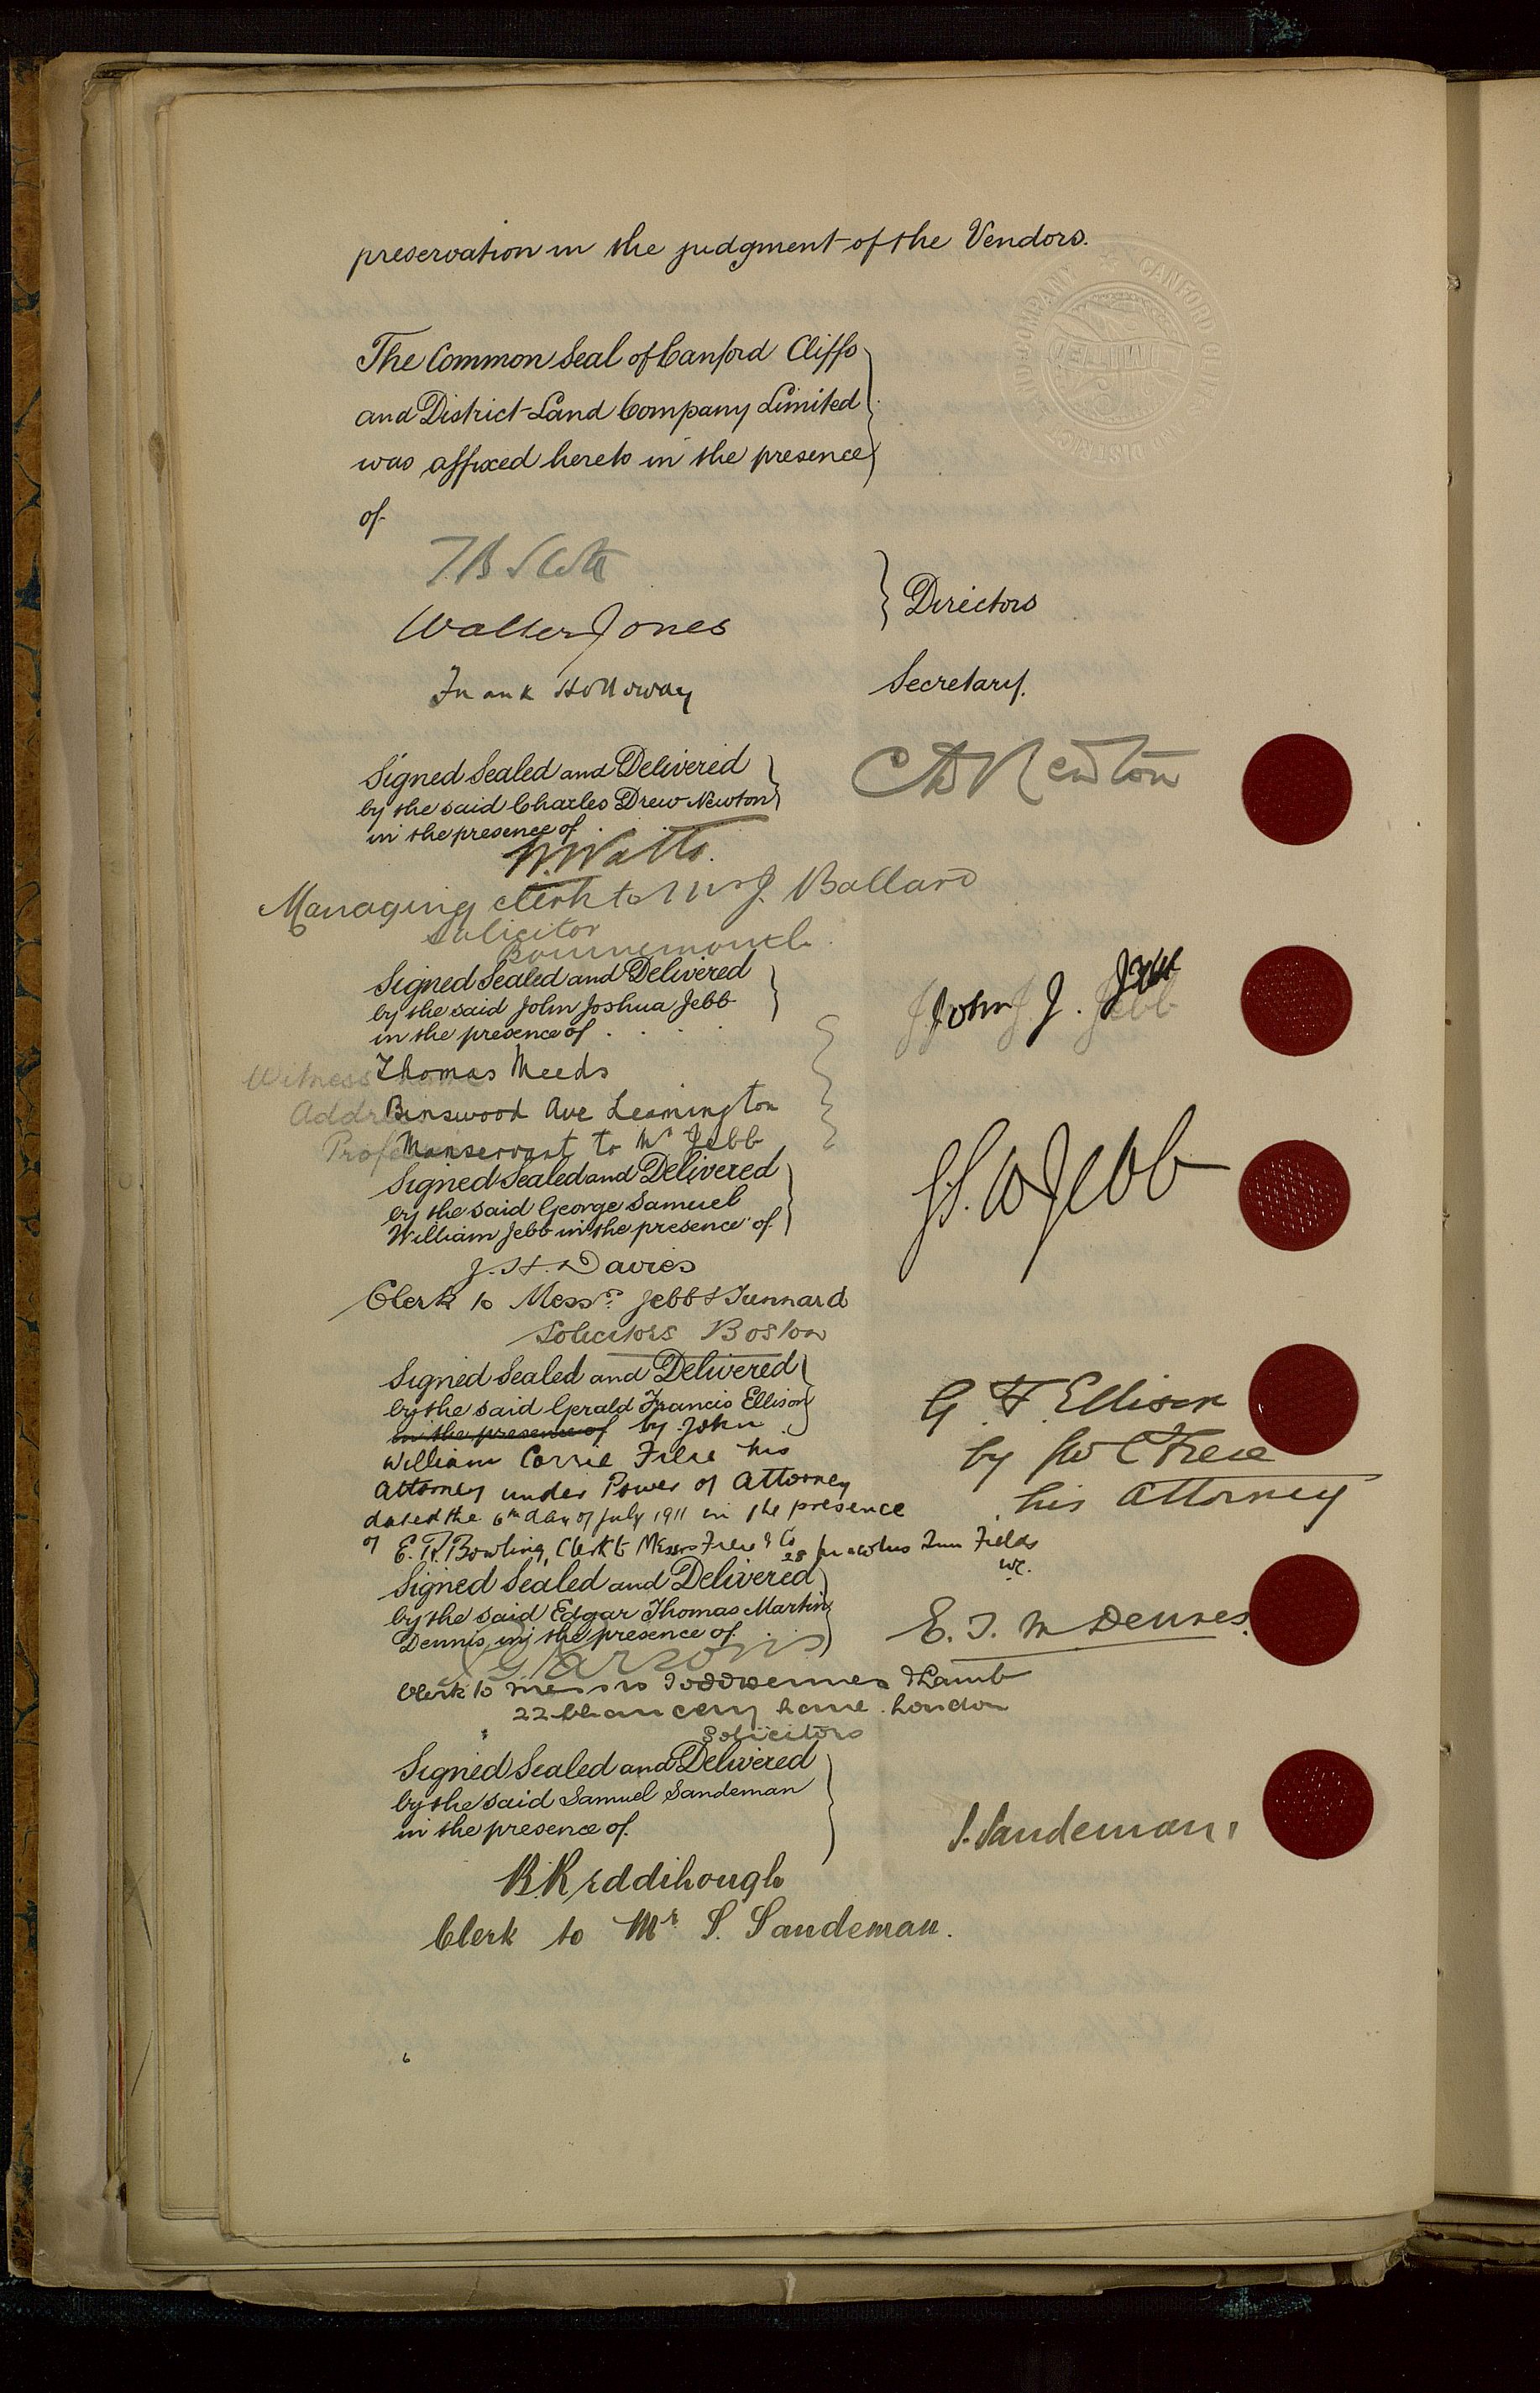 preservation in the judgment of the Vendors.
COMPANY ★ CANFORD CLIFFS
LIMITED
DISTRICT
The Common Seal of Canford Cliffs
and District Land Company Limited
was affixed hereto in the presence
of
T B
Walter Jones
Directors
Frank Holloway
Secretary.
Signed Sealed and Delivered
by the said Charles Drew Newton
in the presence of
C D Newton
W. Watts.
Managing clerk to Mr J. Ballard
Solicitor
Bournemouth.
Signed Sealed and Delivered
by the said John Joshua Jebb
in the presence of . . . .
John J. Jebb
Witness Thomas Meeds
Address Binswood Ave Leamington
Manservant to Mr Jebb
Signed Sealed and Delivered
by the said George Samuel
William Jebb in the presence of
G. S. W Jebb
J. H. Davies
Clerk to Messrs. Jebb & Tunnard
Solicitors Boston
Signed Sealed and Delivered
by the said Gerald Francis Ellison
in the presence of by John
William Corrie Frere his
Attorney under Power of Attorney
dated the 6th day of July 1911 in the presence
of E. R. Bowling, Clerk to Messrs Frere & Co 28 Lincolns Inn Fields
W.C.
G. F. Ellison
by J W C Frere
his Attorney
Signed Sealed and Delivered
by the said Edgar Thomas Martin
Dennes, in the presence of
E. T. M Dennes.
Parsons
Clerk to Messrs Todd Dennes & Lamb
22 Chancery Lane. London
Solicitors
Signed Sealed and Delivered
by the said Samuel Sandeman
in the presence of.
S. Sandeman.
B. Reddihough
Clerk to Mr S. Sandeman.
6